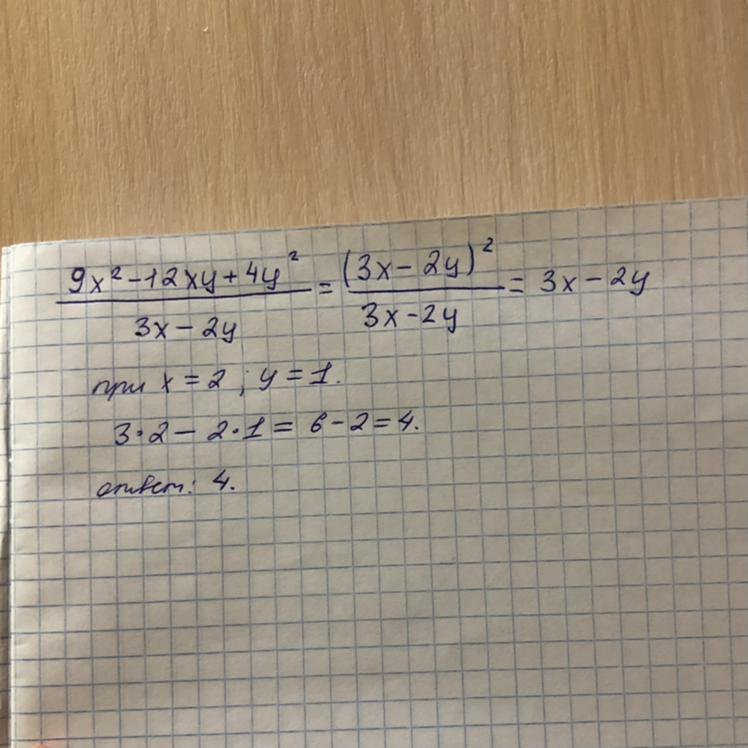 (9x² − 12xy + 4y²)/(3x − 2y) = (3x − 2y)²/(3x − 2y) = 3x − 2y
при x = 2 ; y = 1.
3·2 − 2·1 = 6 − 2 = 4.
ответ: 4.